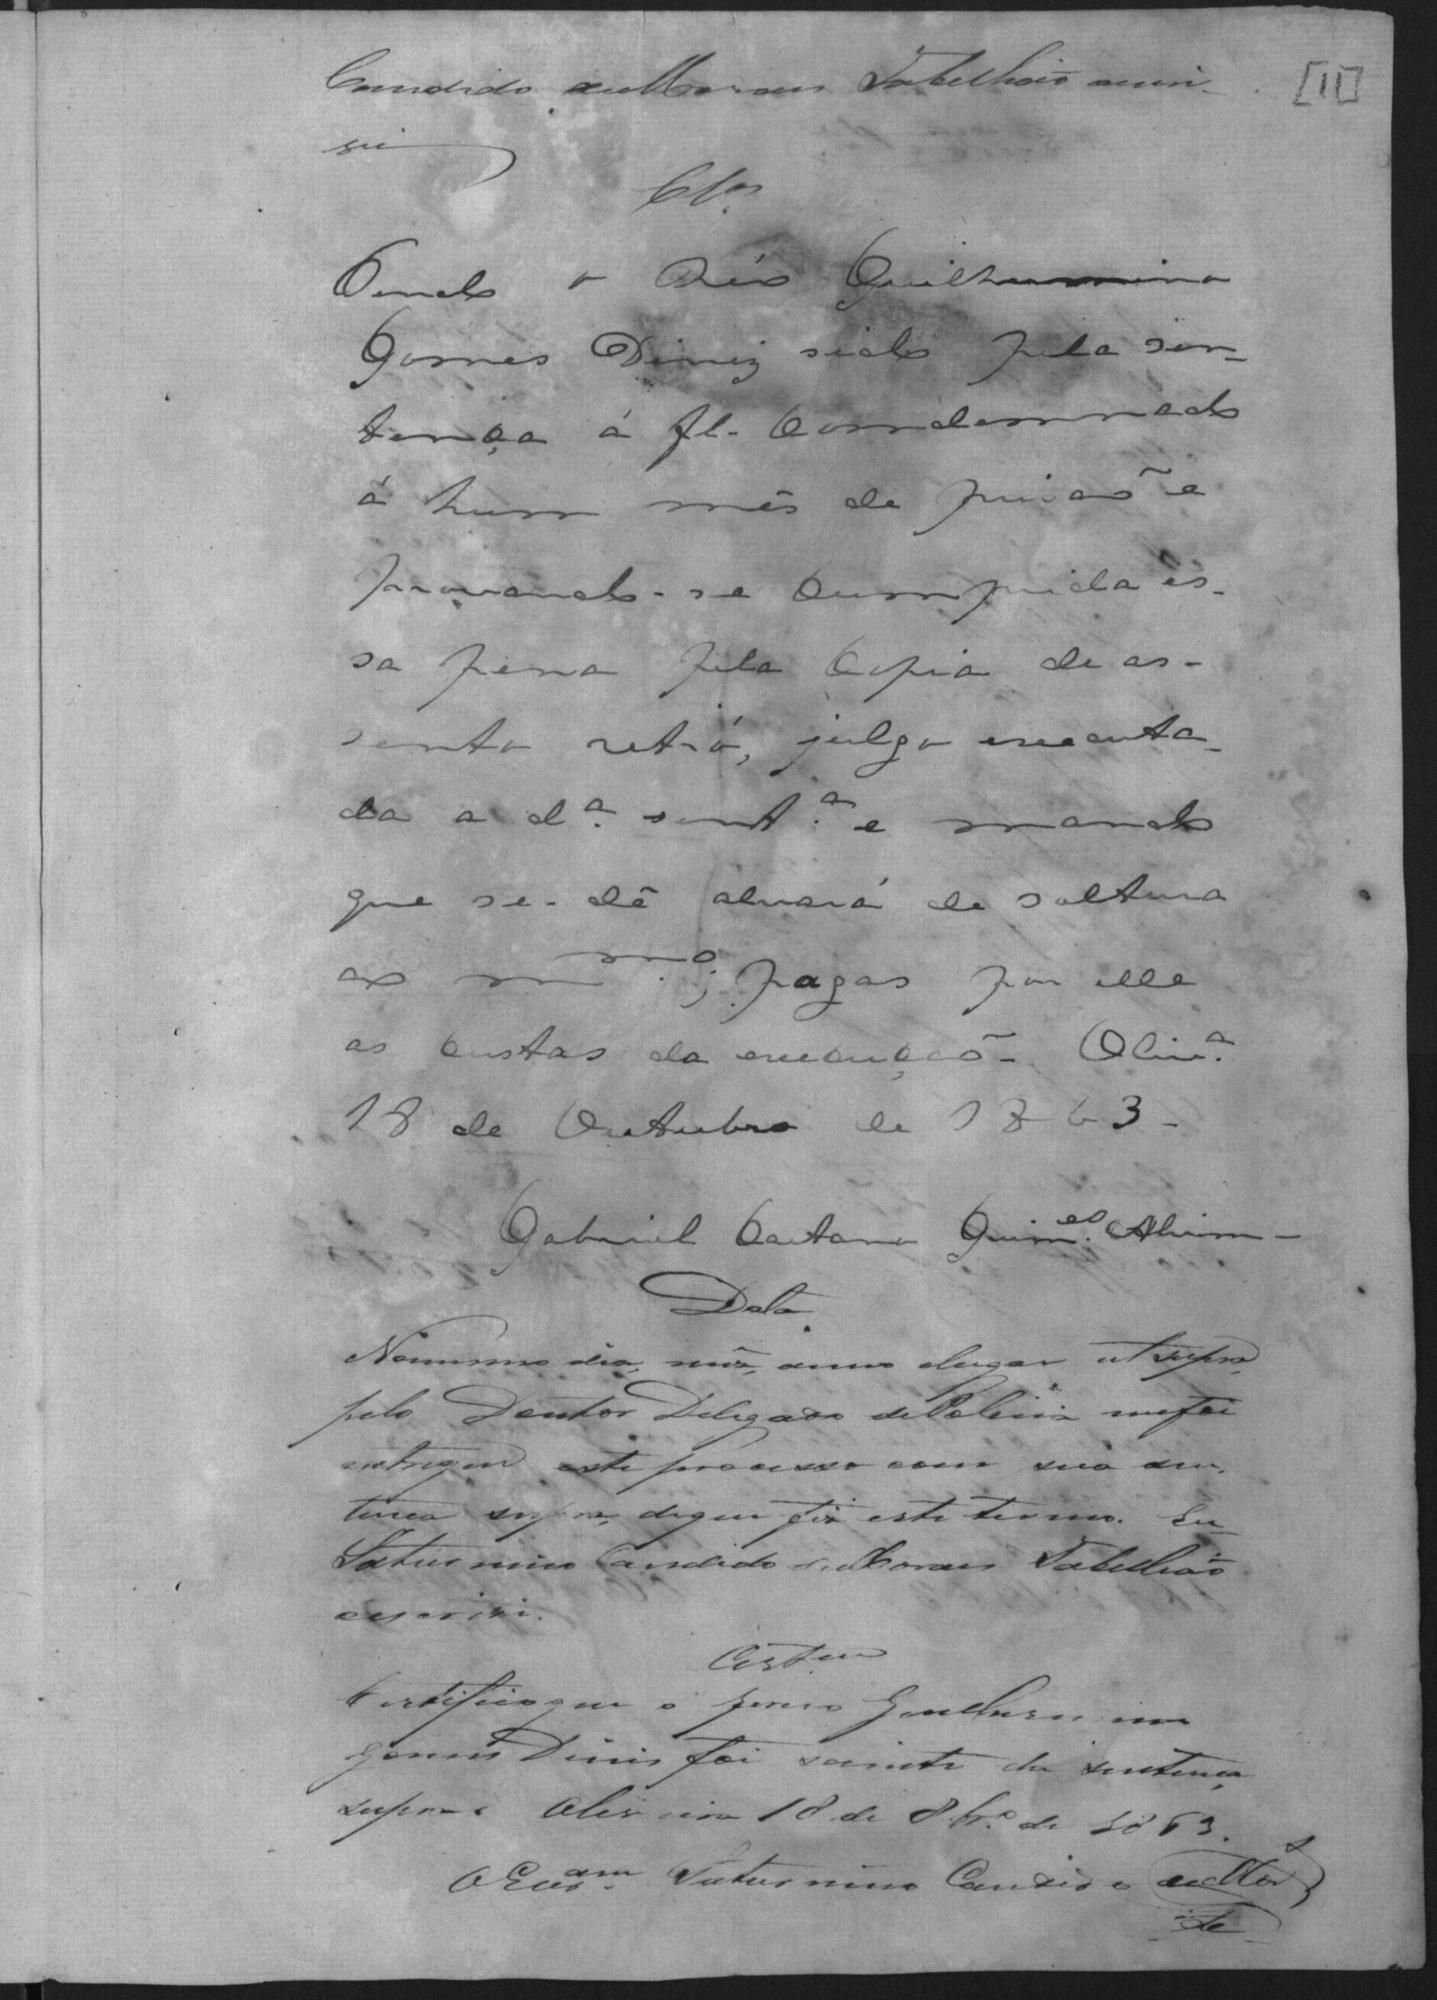 [11]
Candido de Moraes Tabelhaõ escre-
vi
Cl.os
Tendo o Réo Guilhermino
Gomes Diniz sido pela sen-
tença á fl. Condemnado
á hum mês de prisaõ e
provando-se cumprida es-
sa pena pela Copia de as-
sento retró, julgo executa-
da a d.a sent.a e mando
que se-dê alvará de soltura
ao m.mo; pagas por elle
as custas da execuçaõ. Oliv.a
18 de Outubro de 1863-
Gabriel Caetano Guim.es Alvim-
Data
No mesmo dia, mês, anno elugar ut supra,
pelo Doutor Delegado de Policia me foi
entregue este processo com sua sen-
tença supra, de que fiz este termo. Eu
Saturnino Candido de Moraes Tabelliaõ
escrivi.
Certifico que o preso Guilhermino
Gomes Dinis foi sciente da sentença,
supra. Oliveira 18 de 8br.o de 1863.
O Escr.am Saturnino Candido de Mor.s